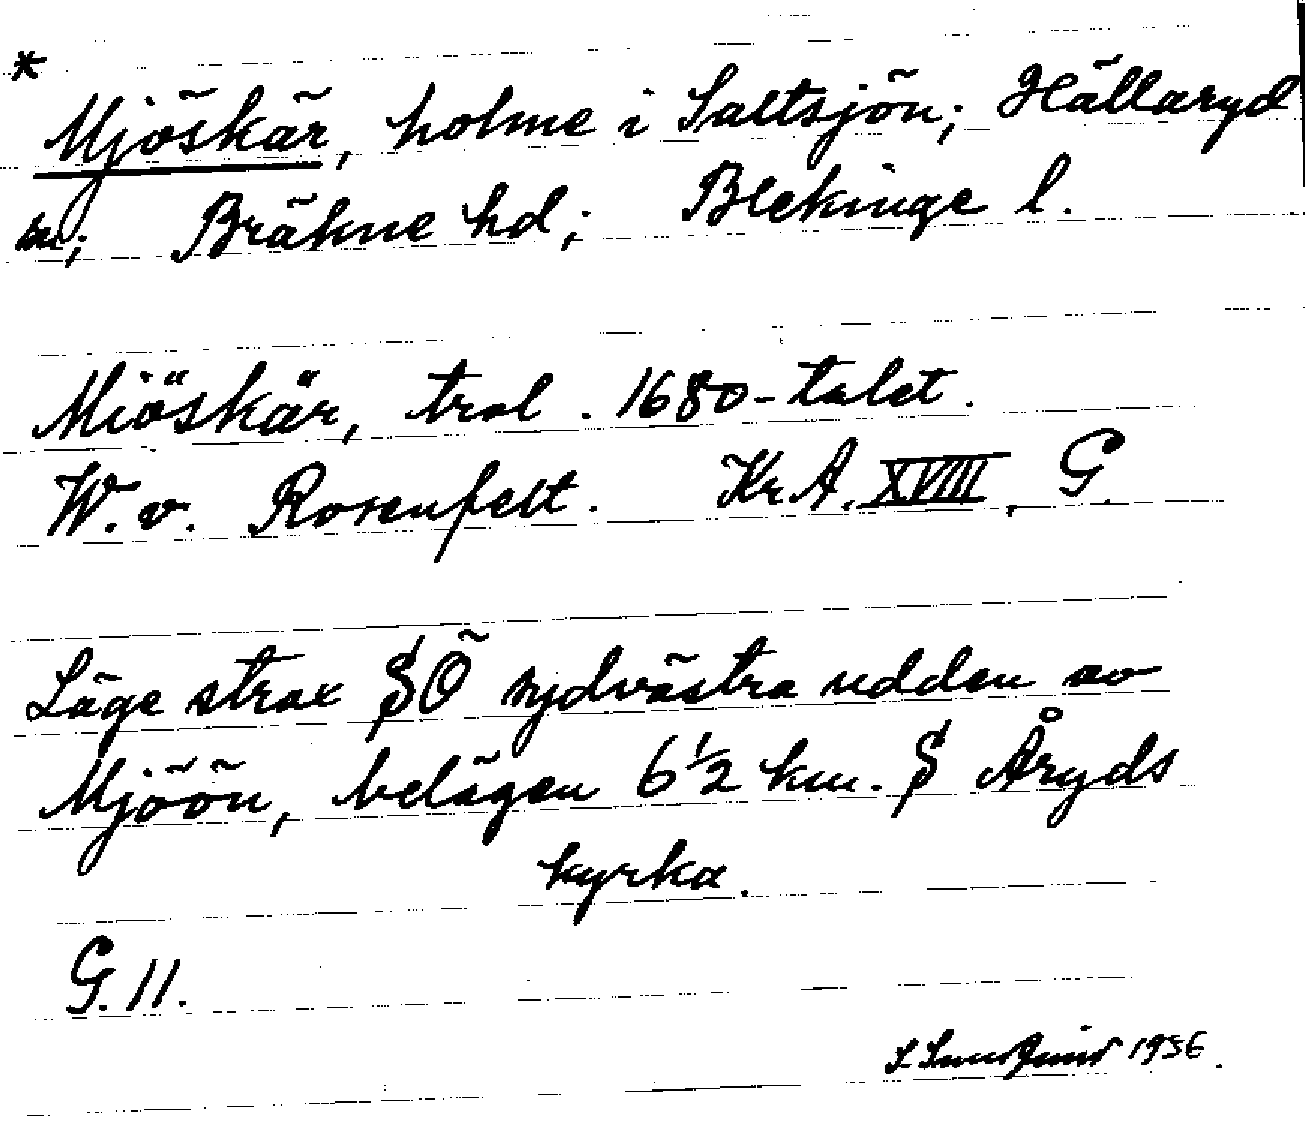 *
Mjöskär, holme i Saltsjön; Hällaryd
sn; Bräkne hd; Blekinge l.
Miöskär, trol. 1680-talet.
W. v. Rosenfelt. Kr A. XVIII, G.
Läge strax SÖ sydvästra udden av
Mjöön, belägen 6 1/2 km. S Åryds
kyrka.
G. 11.
1956.